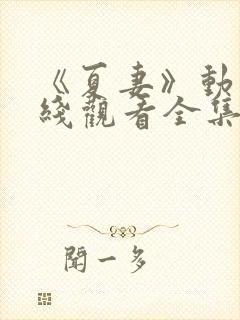 《夏妻》動
綫觀看全集
聞一多